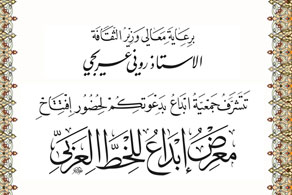 برعاية معالي وزير الثقافة
الاستاذ روني عريجي
تتشرف جمعية ابداع بدعوتكم لحضور افتتاح
معرض إبداع للخط العربي